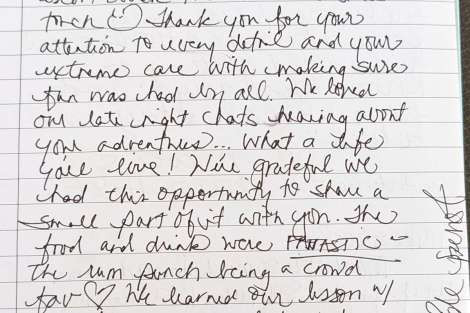 touch ☺ Thank you for your
attention to every detail and your
extreme care with making sure
fun was had by all. We loved
our late night chats hearing about
your adventures... What a life
you live! We're grateful we
had this opportunity to share a
small part of it with you. The
food and drink were FANTASTIC -
the rum punch being a crowd
fav ♡ We learned our lesson w/